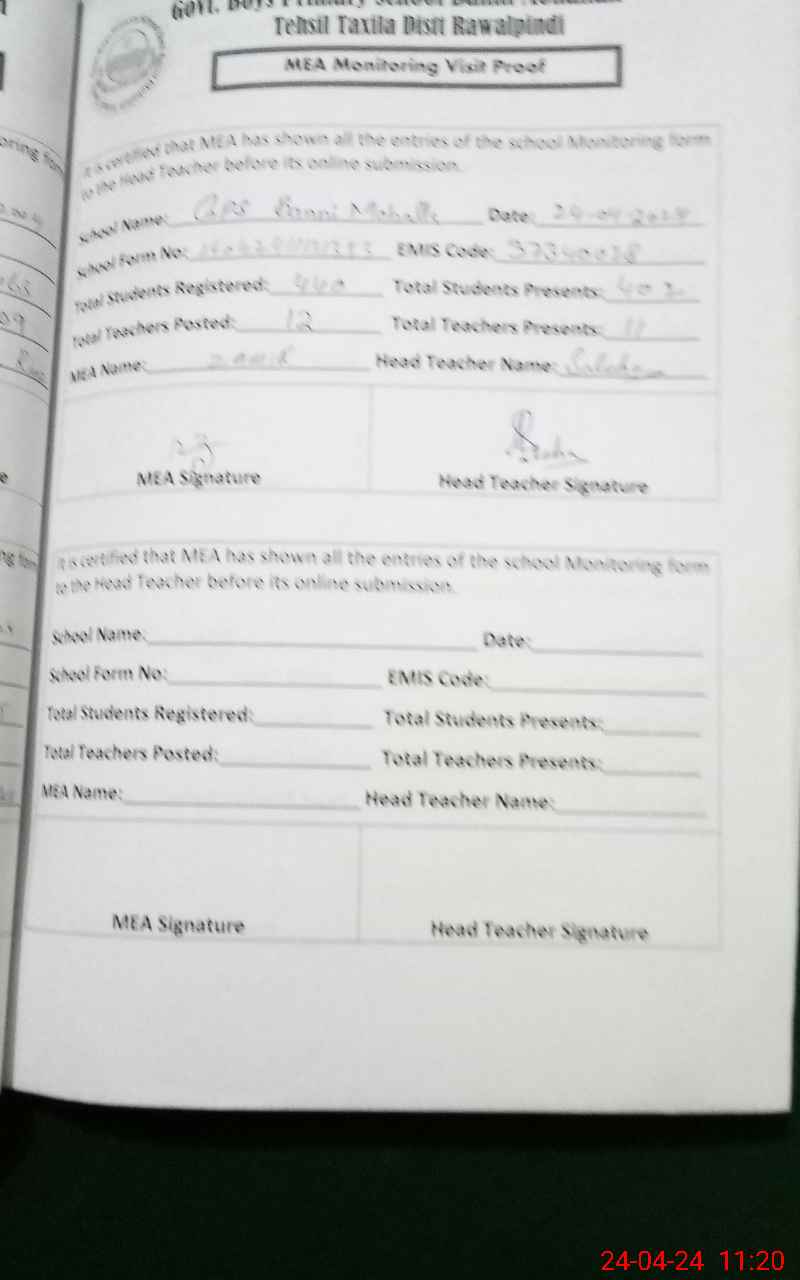 Govt. Boys Primary School
Tehsil Taxila Distt Rawalpindi
MEA Monitoring Visit Proof
It is certified that MEA has shown all the entries of the school Monitoring form
to the Head Teacher before its online submission.
School Name: GPS Banni Mohalla Date: 24-04-2024
School Form No: EMIS Code: 37340028
Total Students Registered: 440 Total Students Presents: 402
Total Teachers Posted: 12 Total Teachers Presents: 11
MEA Name: Head Teacher Name:
MEA Signature Head Teacher Signature
It is certified that MEA has shown all the entries of the school Monitoring form
to the Head Teacher before its online submission.
School Name: Date:
School Form No: EMIS Code:
Total Students Registered: Total Students Presents:
Total Teachers Posted: Total Teachers Presents:
MEA Name: Head Teacher Name:
MEA Signature Head Teacher Signature
24-04-24 11:20